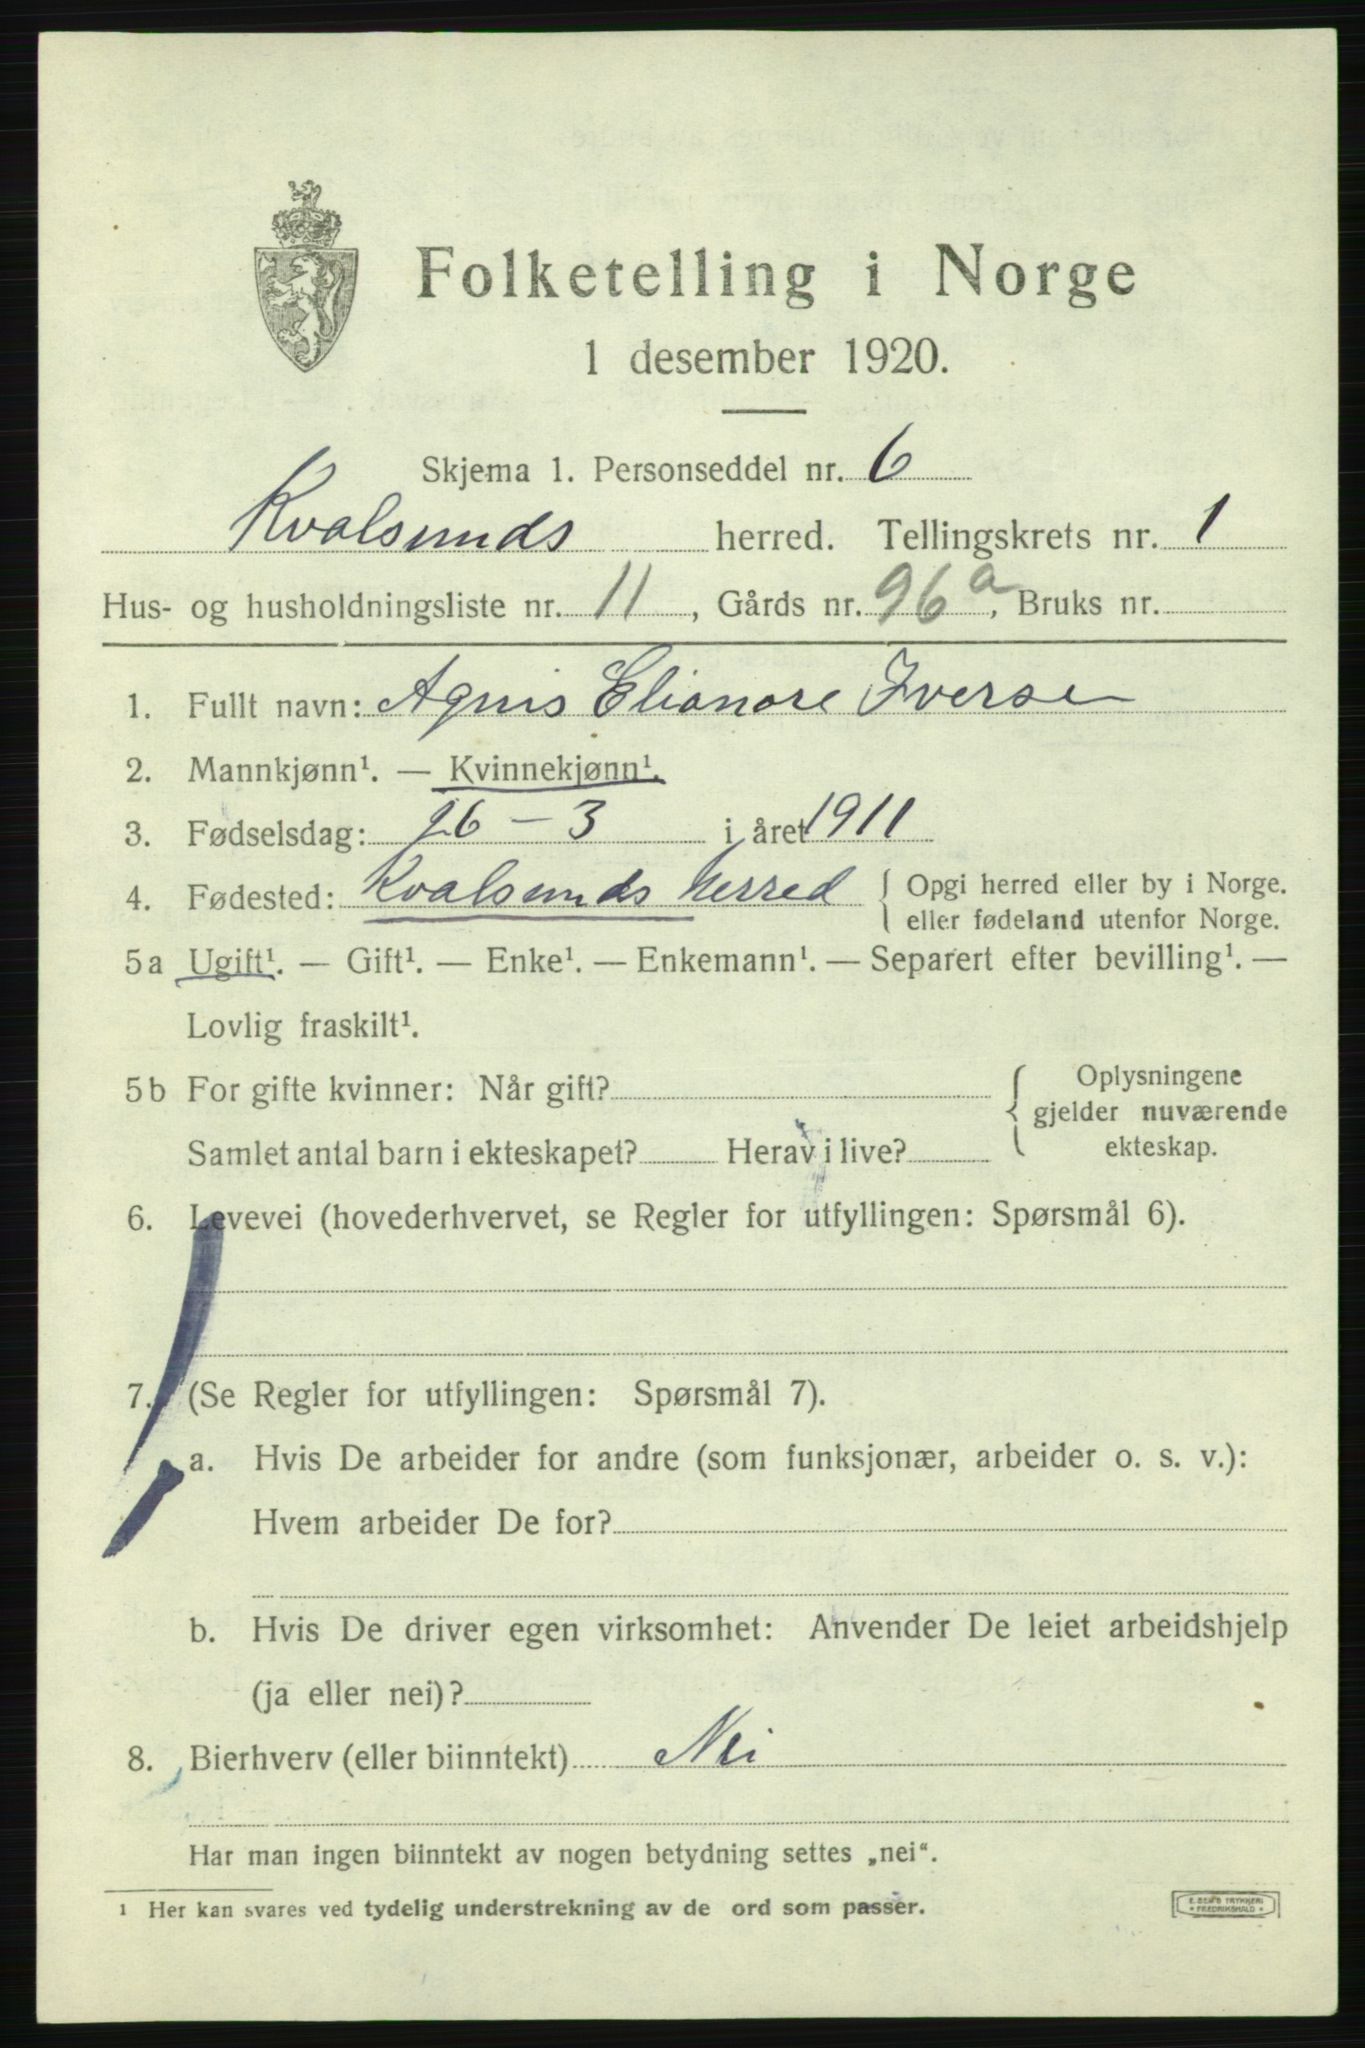 Folketelling i Norge
1 desember 1920.
Skjema 1. Personseddel nr. 6
Kvalsunds herred. Tellingskrets nr. 1
Hus- og husholdningsliste nr. 11, Gårds nr. 96a, Bruks nr.
1. Fullt navn: Agnis Elianore Iversen
2. Mannkjønn¹. — Kvinnekjønn¹.
3. Fødselsdag: 26 - 3 i året 1911
4. Fødested: Kvalsunds herred { Opgi herred eller by i Norge.
eller fødeland utenfor Norge.
5a Ugift¹. — Gift¹. — Enke¹. — Enkemann¹. — Separert efter bevilling¹. —
Lovlig fraskilt¹.
5b For gifte kvinner: Når gift? { Oplysningene
gjelder nuværende
Samlet antal barn i ekteskapet? Herav i live? ekteskap.
6. Levevei (hovederhvervet, se Regler for utfyllingen: Spørsmål 6).
7. (Se Regler for utfyllingen: Spørsmål 7).
a. Hvis De arbeider for andre (som funksjonær, arbeider o. s. v.):
Hvem arbeider De for?
b. Hvis De driver egen virksomhet: Anvender De leiet arbeidshjelp
(ja eller nei)?
8. Bierhverv (eller biinntekt) Nei
Har man ingen biinntekt av nogen betydning settes „nei“.
¹ Her kan svares ved tydelig understrekning av de ord som passer.
E. SEM'S TRYKKERI
FREDRIKSHALD